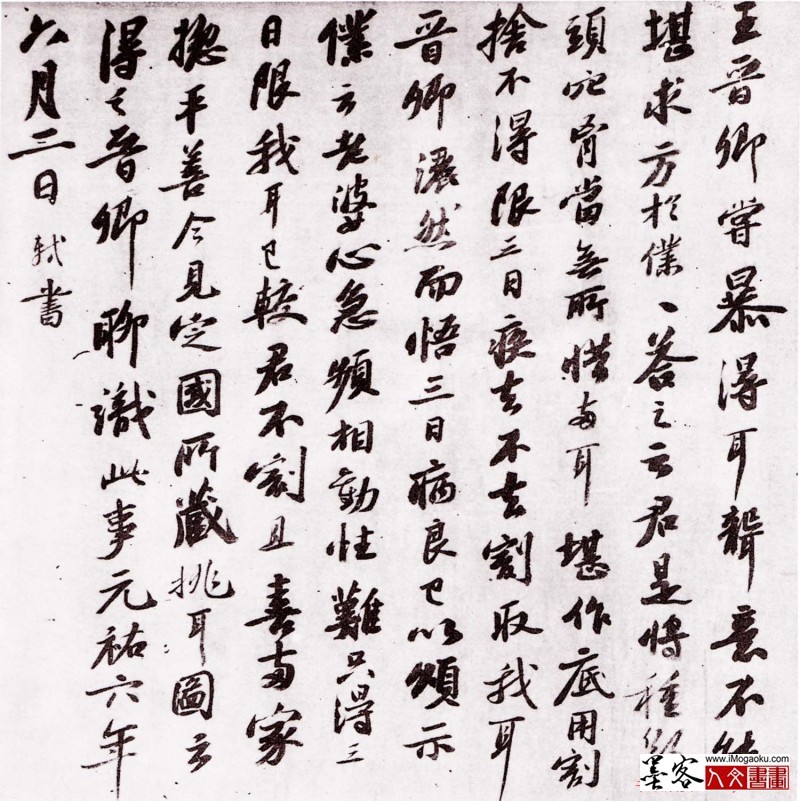 王晉卿嘗暴得耳聾意不能
堪求方於僕、答之云君是將種斷
頭穴胷當無所惜兩耳堪作底用割
捨不得限三日疾去不去割取我耳
晉卿灑然而悟三日病良已以頌示
僕云老婆心急頻相勸性難只得三
日限我耳已較君不割且喜兩家
揔平善今見定國所藏挑耳圖云
得之晉卿聊識此事元祐六年
六月三日軾書
墨客
www.iMogaoku.com
人文書畫